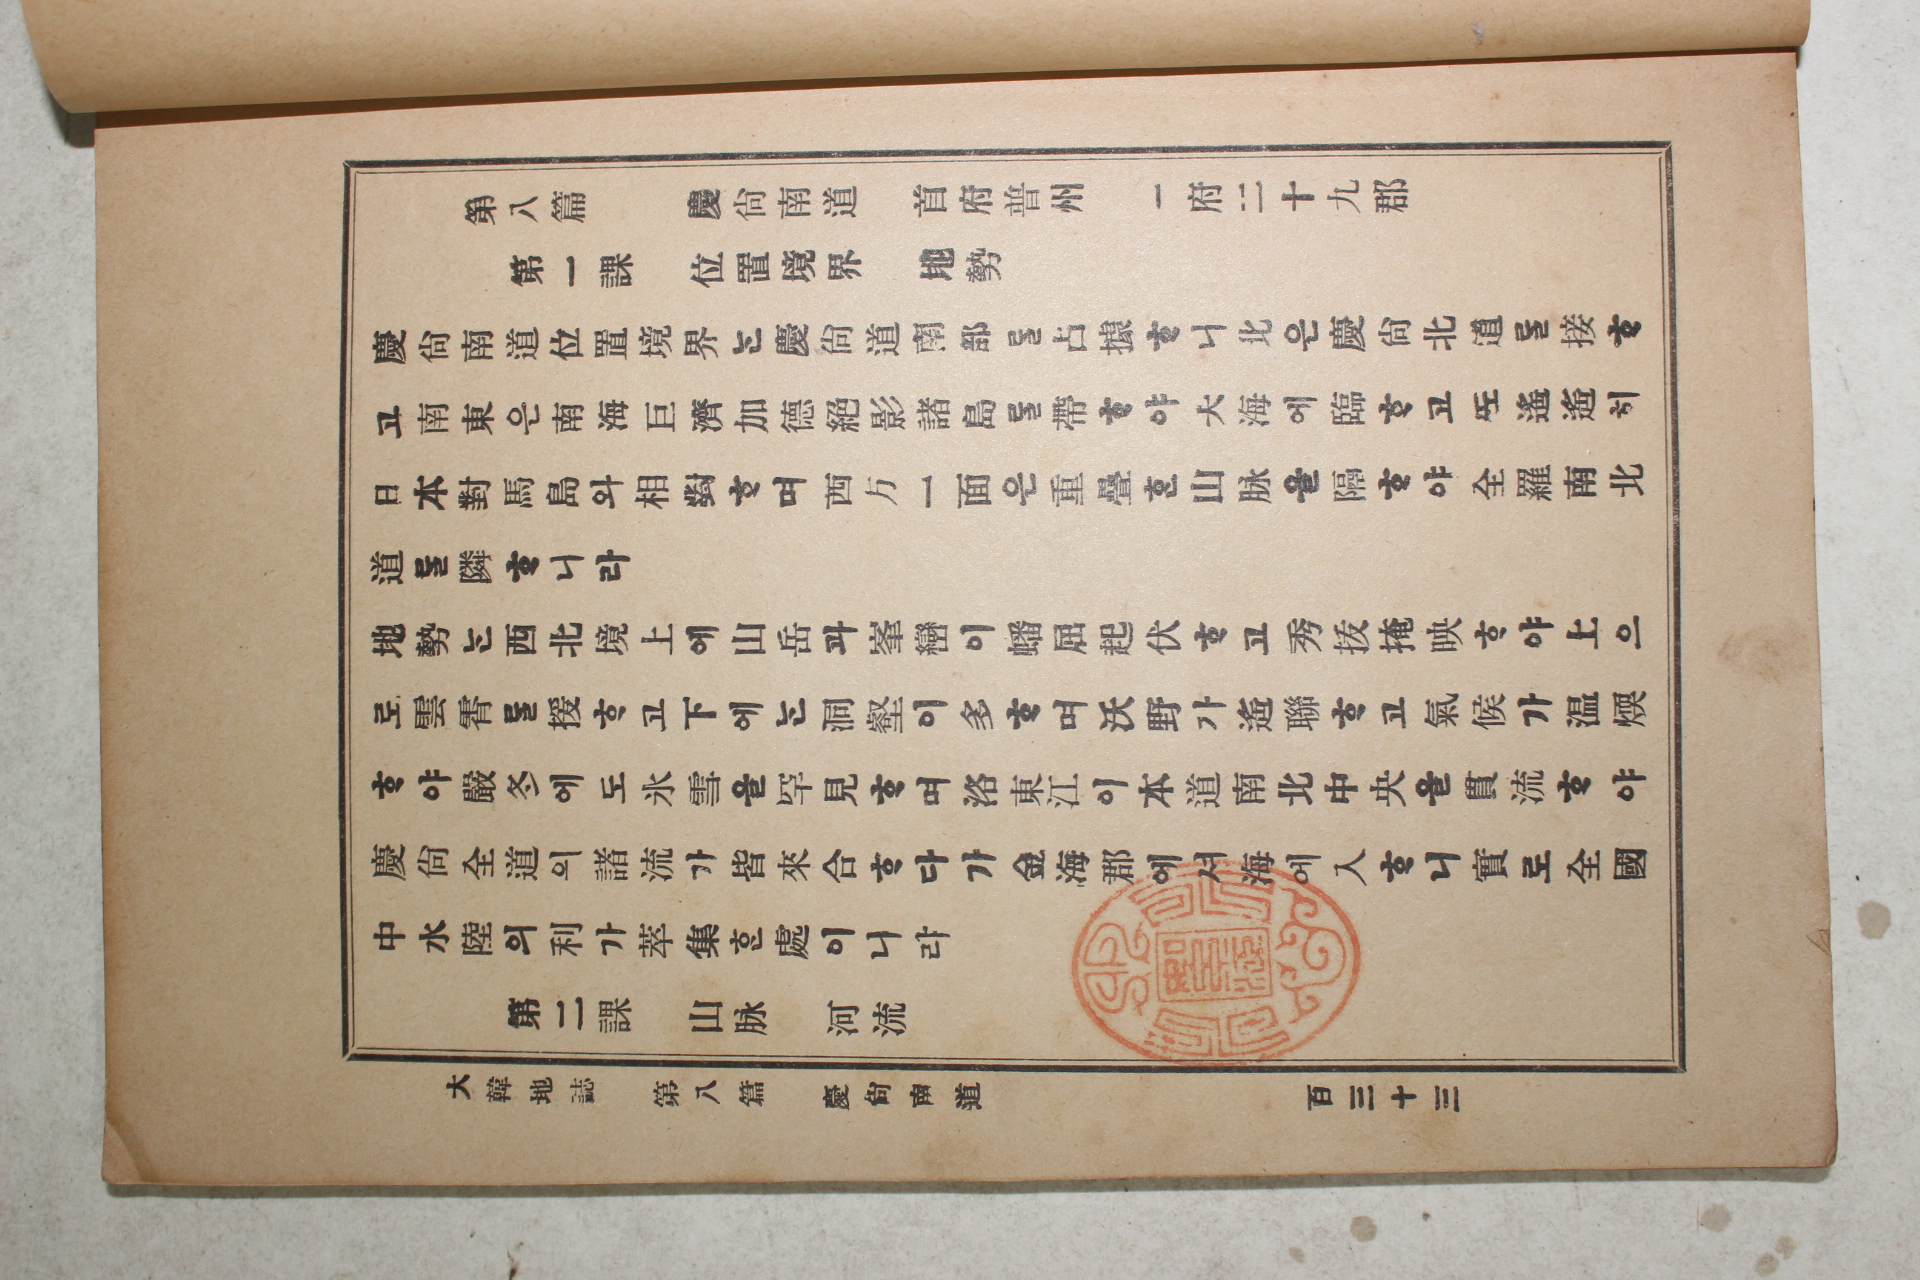 第八篇 慶尙南道 首府普州 一府二十九郡
第一課 位置境界 地勢
慶尙南道位置境界는慶尙道南部를占據ᄒᆞ니北은慶尙北道를接ᄒᆞ
고南東은南海巨濟加德絕影諸島를帶ᄒᆞ야大海에臨ᄒᆞ고ᄯᅩ遙遙히
日本對馬島와相對ᄒᆞ며西方一面은重疊ᄒᆞᆫ山脉을隔ᄒᆞ야全羅南北
道를隣ᄒᆞ니라
地勢는西北境上에山岳과峯巒이蟠屈起伏ᄒᆞ고秀拔掩映ᄒᆞ야上으
로雲霄를援ᄒᆞ고下에는洞壑이多ᄒᆞ며沃野가遙聯ᄒᆞ고氣候가温煗
ᄒᆞ야嚴冬에도氷雪을罕見ᄒᆞ며洛東江이本道南北中央을貫流ᄒᆞ야
慶尙全道의諸流가皆來合ᄒᆞ다가金海郡에서海에入ᄒᆞ니實로全國
中水陸의利가萃集ᄒᆞᆫ處이니라
第二課 山脉 河流
大韓地誌 第八篇 慶尙南道 百三十三